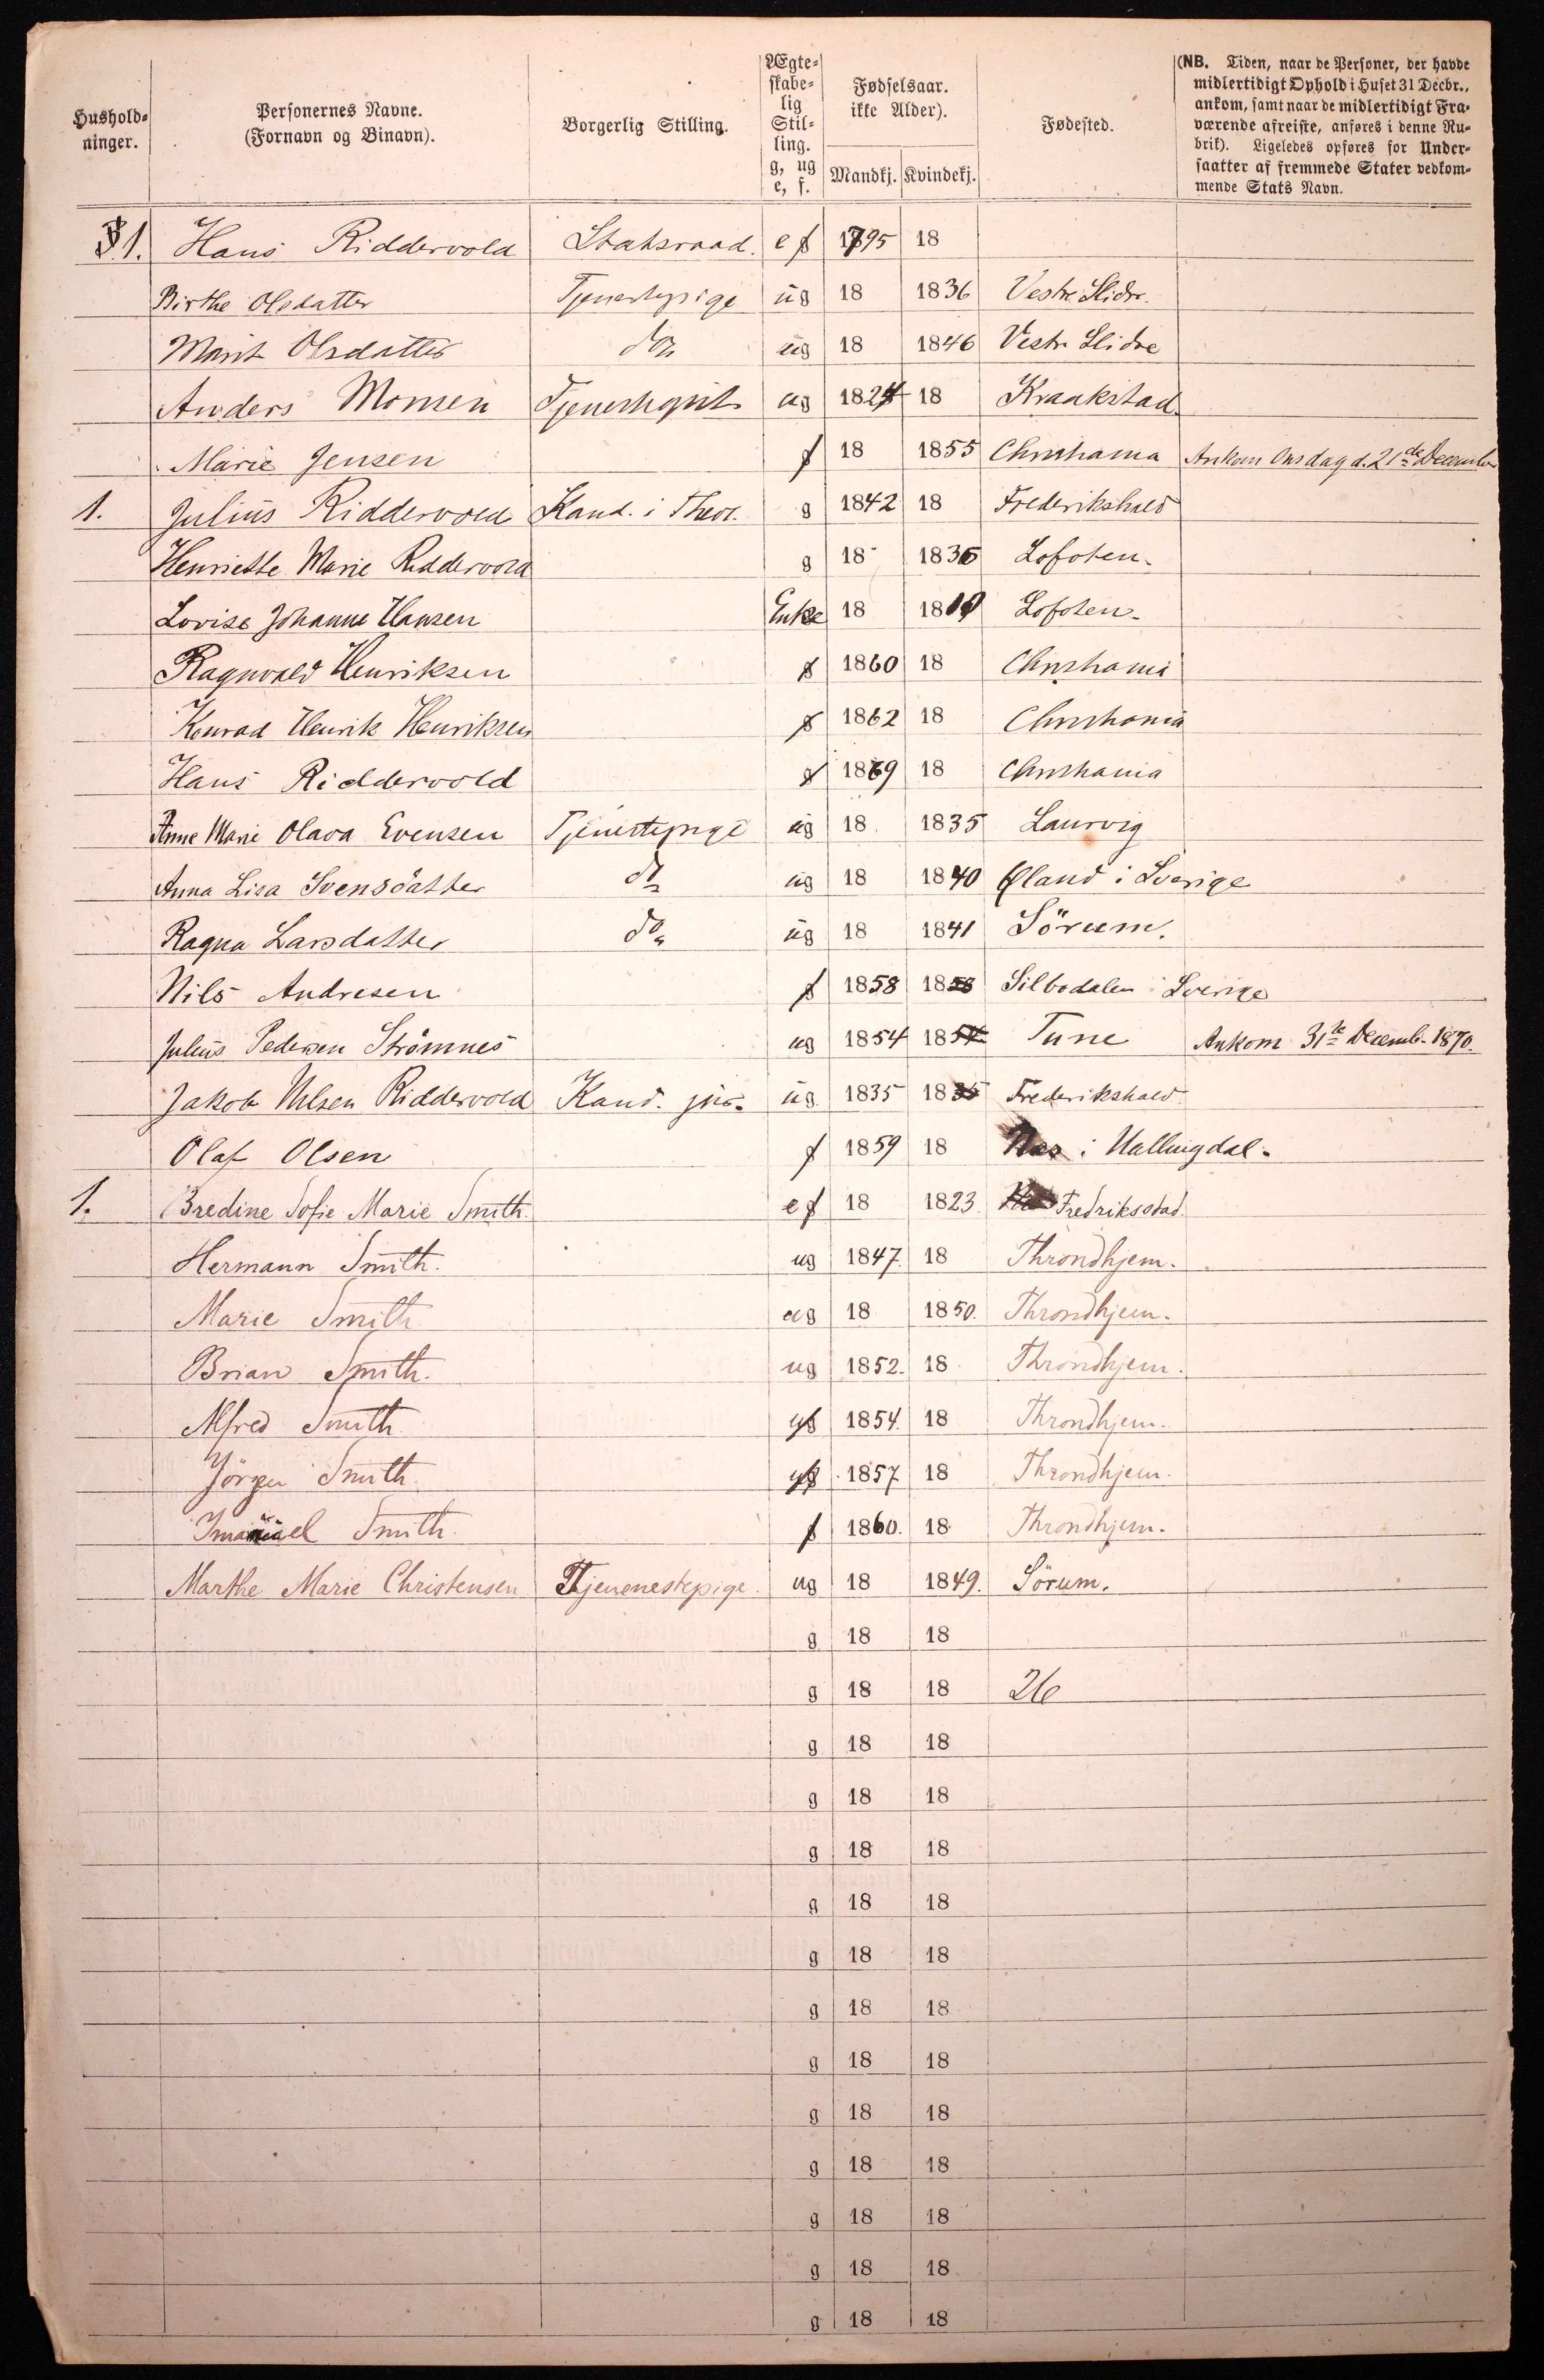 Hushold-
ninger.
Personernes Navne.
(Fornavn og Binavn).
Borgerlig Stilling.
Ægte-
skabe-
lig
Stil-
ling.
g, ug
e, f.
Fødselsaar.
ikke Alder).
Mandkj. Kvindekj.
Fødested.
(NB. Tiden, naar de Personer, der havde
midlertidigt Ophold i Huset 31 Decbr.,
ankom, samt naar de midlertidigt Fra-
værende afreiste, anføres i denne Ru-
brik). Ligeledes opføres for Under-
saatter af fremmede Stater vedkom-
mende Stats Navn.
1. Hans Riddervold Statsraad. e 1795 18
Birthe Olsdatter Tjenestepige ug 18 1836 Vestre Slidre.
Marit Olsdatter do ug 18 1846 Vestre Slidre
Anders Momsen ug 1824 18 Kraakstad.
Marie Jensen 18 1855 Christiania Ankom Onsdag d. 21de December
1. Julius Riddervold Kand. i Theol. g 1842 18 Frederikshald
Henriette Marie Riddervold g 18 1836 Lofoten.
Lovise Johanne Hansen Enke 18 18 Lofoten.
Ragnvald Henriksen 1860 18 Christiania
Konrad Henrik Henriksen 1862 18 Christiania
Hans Riddervold 1869 18 Christiania
Anne Marie Olava Evensen Tjenestepige ug 18 1835 Laurvig
Anna Lisa Svensdatter do ug 18 1840 Øland i Sverige
Ragna Larsdatter do ug 18 1841 Sörum.
Nils Andresen 1858 1858 Silbodalen Sverige
Julius Pedersen Strömnes ug 1854 1854 Tune Ankom 31te Decemb. 1870.
Jakob Nilsen Riddervold Kand. jur. ug 1835 1835 Frederikshald
Olaf Olsen 1859 18 Næs i Hallingdal.
1. Bredine Sofie Marie Smith. e 18 1823 Fredriksstad.
Hermann Smith. ug 1847. 18 Throndhjem.
Marie Smith ug 18 1850. Throndhjem.
Brian Smith. ug 1852. 18 Throndhjem.
Alfred Smith. 1854. 18 Throndhjem.
Jörgen Smith. 1857 18 Throndhjem.
Smith. 1860. 18 Throndhjem.
Marthe Marie Christensen Tjenenestepige. ug 18 1849. Sörum.
g 18 18
g 18 18 26
g 18 18
g 18 18
g 18 18
g 18 18
g 18 18
g 18 18
g 18 18
g 18 18
g 18 18
g 18 18
g 18 18
g 18 18